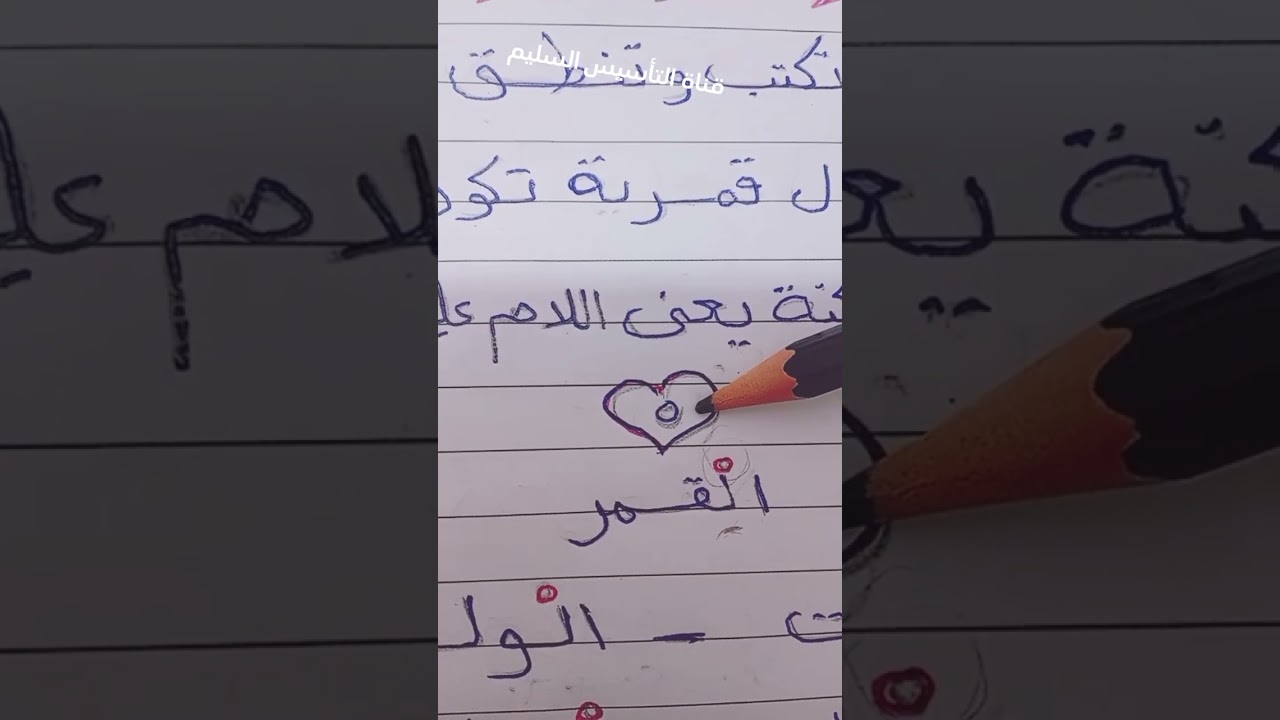 قناة التأسيس السليم
تكتب وتنطق
ل قمرية تكو
يعنى اللام علي
الْقمر
ت - الْولـ